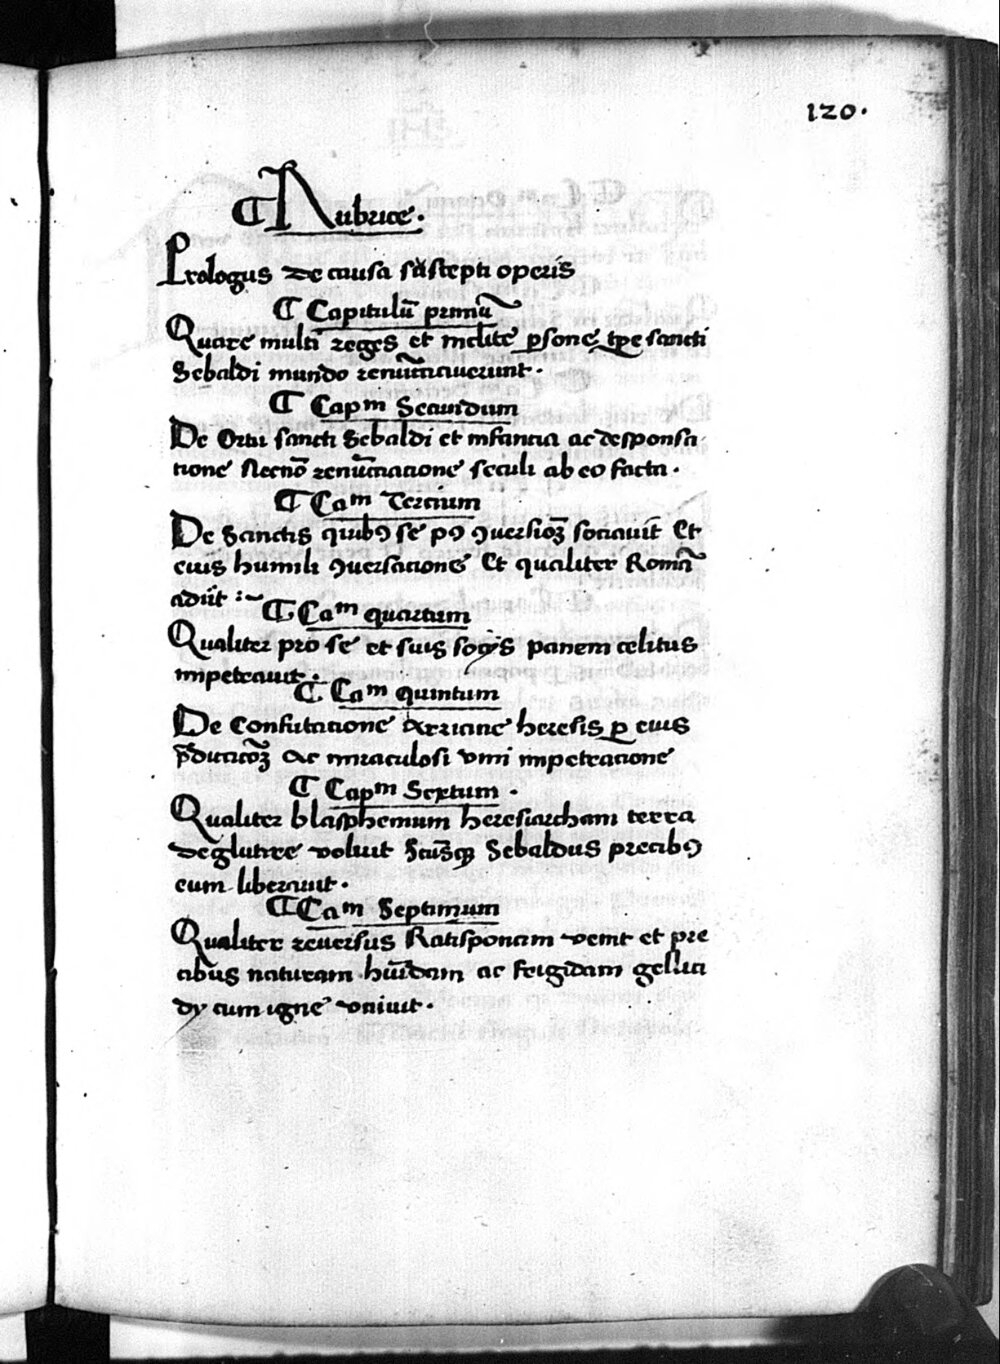 120.
¶ Rubrice.
Prologus de causa suscepti operis
¶ Capitulū primū
Quare multi reges et inclite ꝑsone tꝑe sancti
Sebaldi mundo renūtiauerunt.
¶ Capm Secundum
De Ortu sancti Sebaldi et infantia ac desponsa
tione Necnō renūtiatione seculi ab eo facta.
¶ Cam Tercium
De Sanctis quibꝯ se pꝯ ꝯuersionē sociauit Et
eius humili ꝯuersatione Et qualiter Romā
adiit :~
¶ Cam quartum
Qualiter pro se et suis socijs panem celitus
impetrauit.
¶ Cam quintum
De Confutatione Arriane heresis ꝑ eius
p̄dicatōꝫ Ac miraculosi vini impetratione
¶ Capm Sextum .
Qualiter blasphemum heresiarcham terra
deglutire voluit Sebaldus precibꝯ
eum liberauit.
¶ Cam Septimum
Qualiter reuersus Ratisponam venit et pre
cibus naturam hūidam ac frigidam gelliti
dy cum igne vniuit.